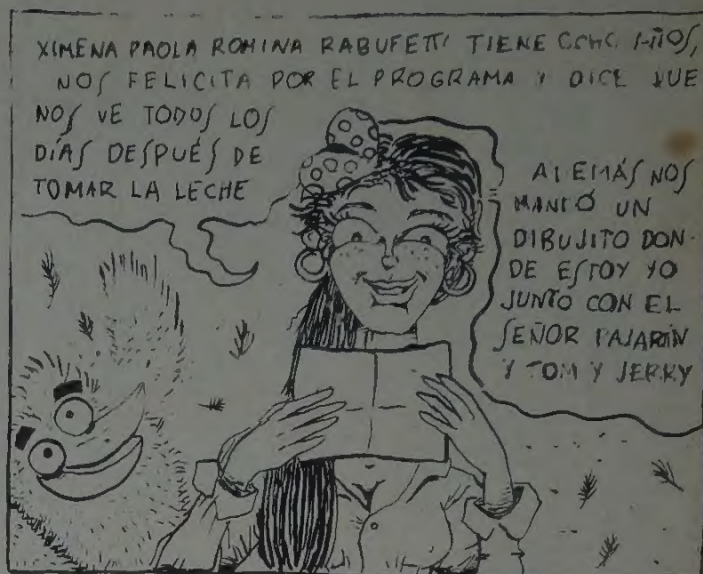 XIMENA PAOLA ROMINA RABUFETTI TIENE OCHO AÑOS,
NOS FELICITA POR EL PROGRAMA Y DICE QUE
NOS VE TODOS LOS
DÍAS DESPUÉS DE
TOMAR LA LECHE
ADEMÁS NOS
MANDÓ UN
DIBUJITO DON-
DE ESTOY YO
JUNTO CON EL
SEÑOR PAJARÍN
Y TOM Y JERRY